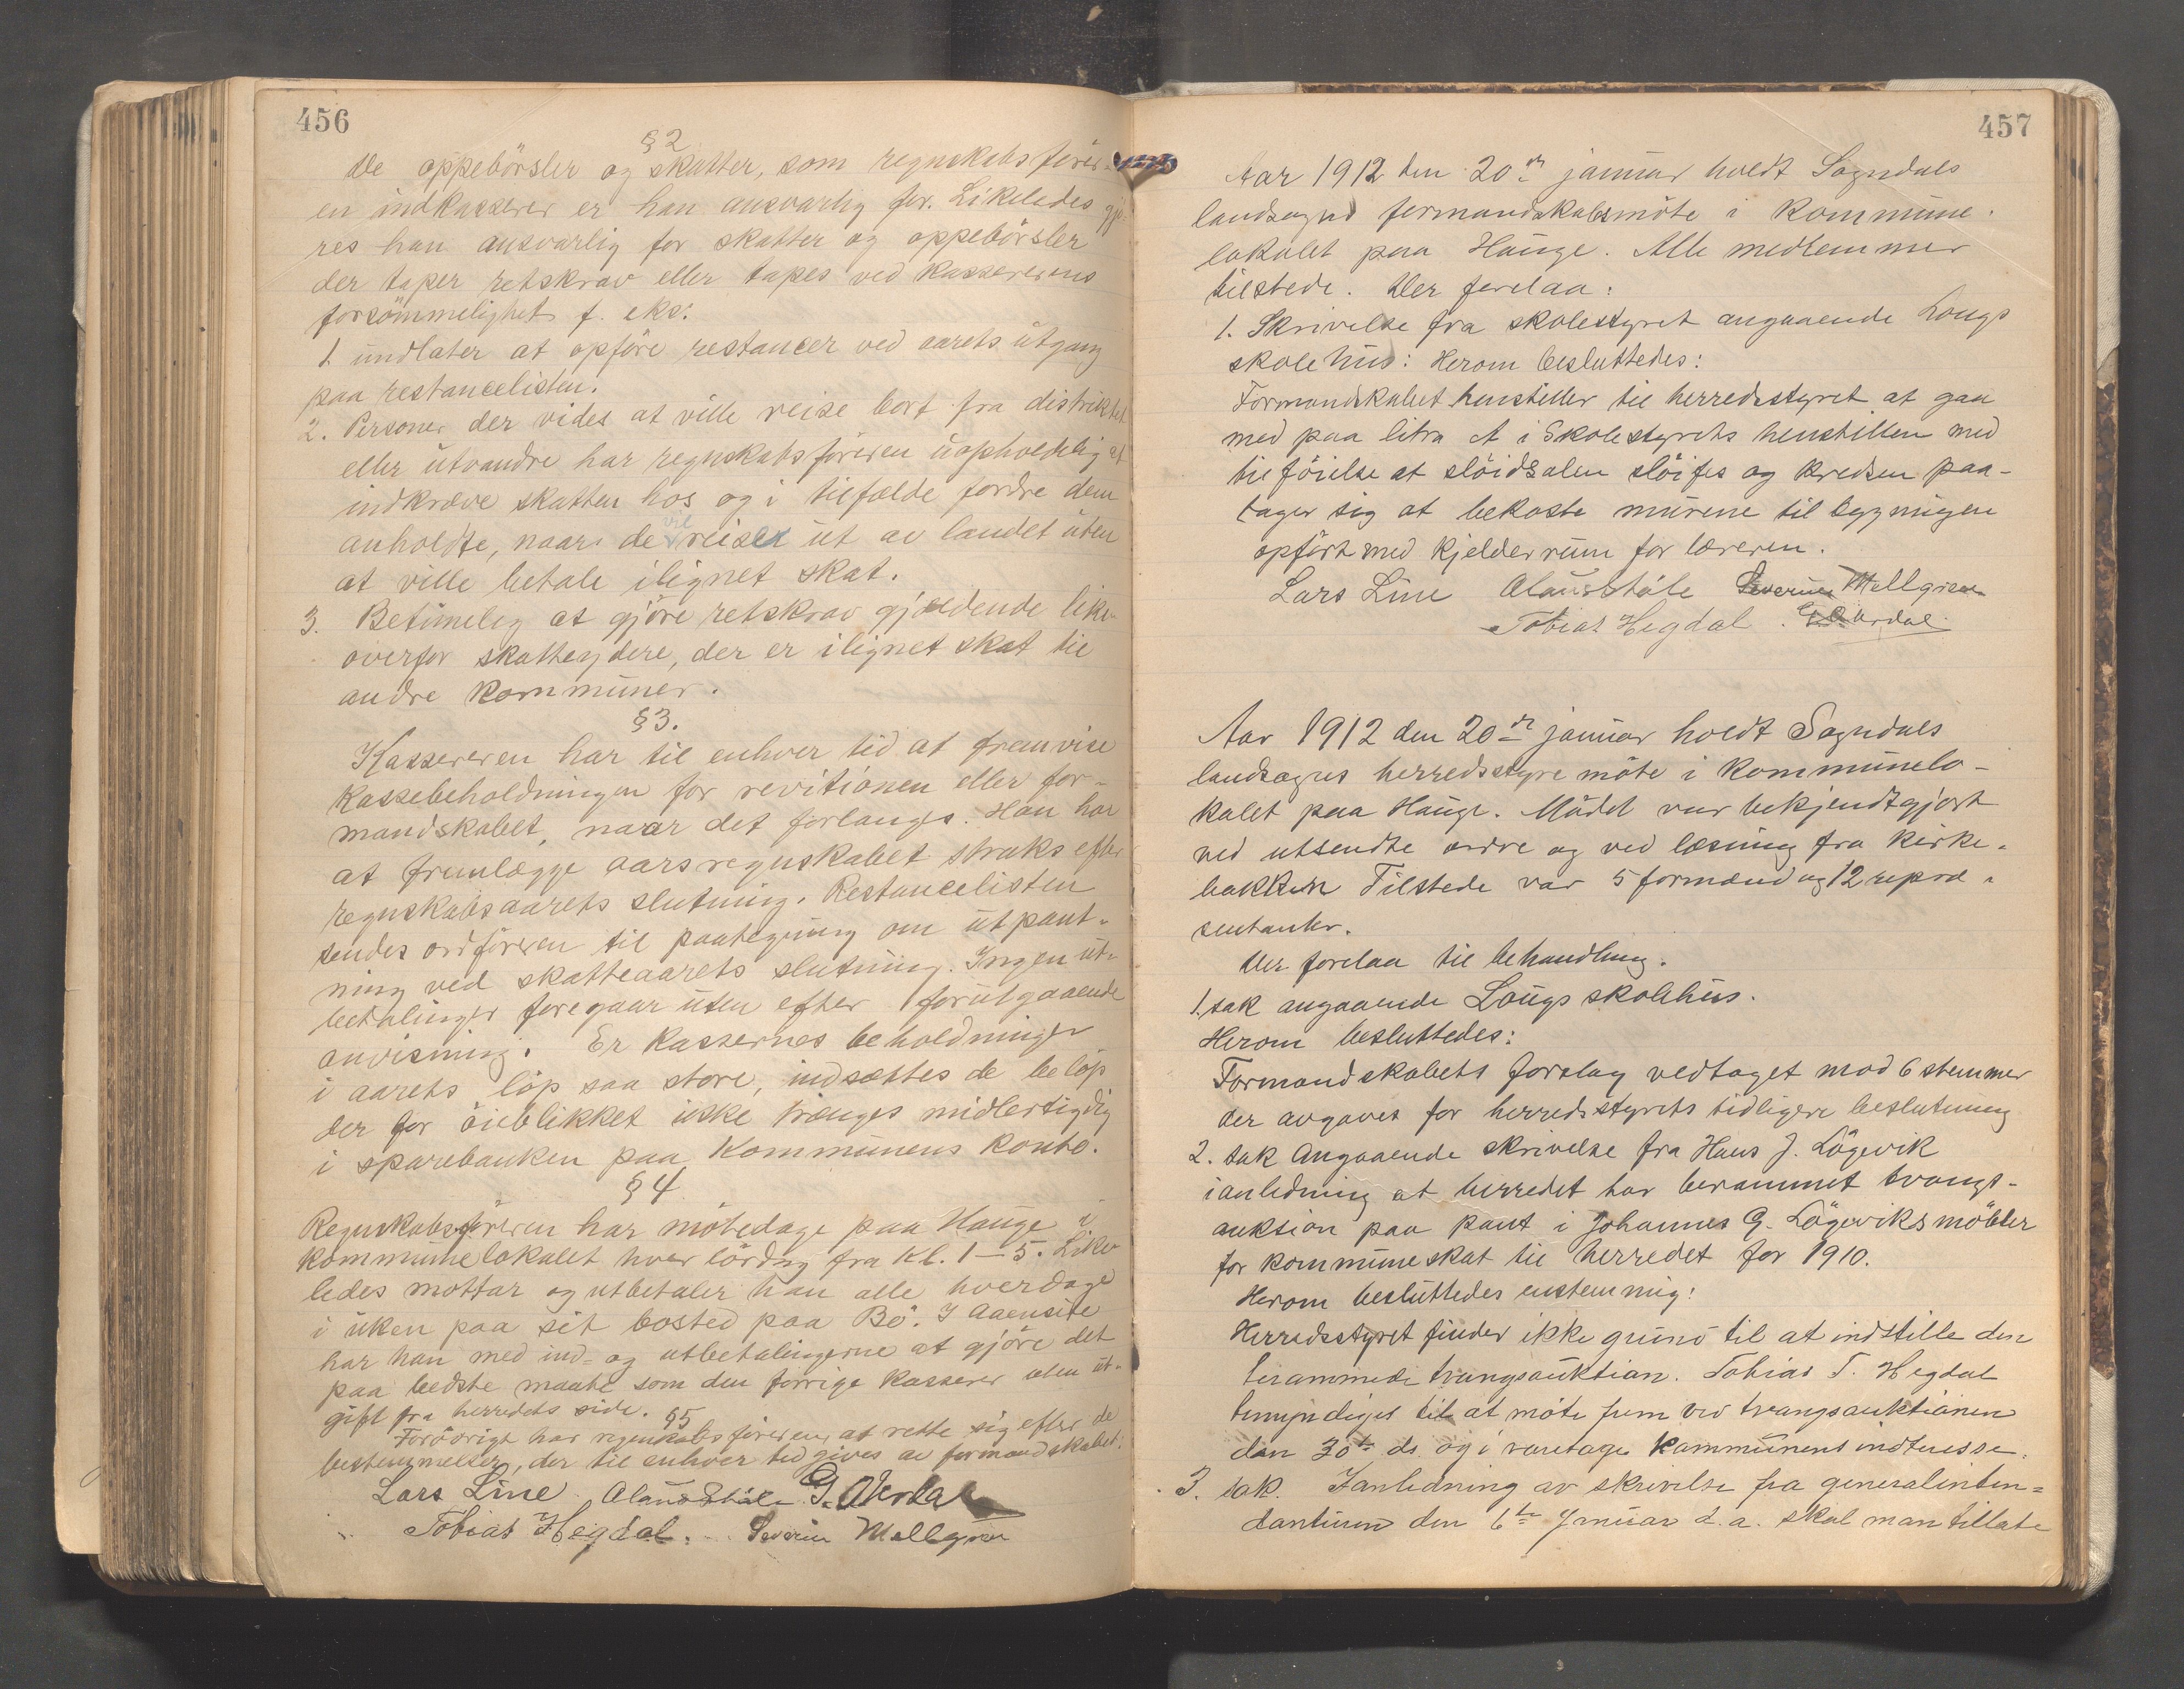 456
§2
De oppebörsler og skatter, som regnskabsförer-
en indkasserer er han ansvarlig for. Likeledes gjö-
res han ansvarlig for skatter og oppebörsler
der taper retskrav eller tapes ved kassererens
forsömmelighet f. eks:
1. undlater at opföre restancer ved aarets utgang
paa restancelisten.
2. Personer der vides at ville reise bort fra distriktet
eller utvandre har regnskabsföreren uopholdelig at
indkræve skatten hos og i tilfælde fordre dem
anholdte, naar de vil reise ut av landet uten
at ville betale ilignet skat.
3. Betimelig at gjöre retskrav gjældende like-
overfor skatteydere, der er ilignet skat til
andre kommuner.
§3.
Kassereren har til enhver tid at fremvise
kassebeholdningen for revitionen eller for-
mandskabet, naar det forlanges. Han har
at fremlægge aarsregnskabet straks efter
regnskabsaarets slutning. Restancelisten
sendes ordföreren til paategning om utpant-
ning ved skatteaarets slutning. Ingen ut-
betalinger foregaar uten efter forutgaaende
anvisning. Er kassernes beholdninger
i aarets löp saa store, indsættes de belöp
der for öieblikket ikke trænges midlertigdig
i sparebanken paa Kommunens konto.
§4
Regnskabsföreren har mötedage paa Hauge i
kommunelokalet hver lördag fra kl. 1–5. Like-
ledes mottar og utbetaler han alle hverdage
i uken paa sit bosted paa Bö. I Aaensire
har han med ind- og utbetalingerne at gjöre det
paa bedste maate som den forrige kasserer uten ut-
gift fra herredets side.
§5
Forövrigt har regnskabsföreren at rette sig efter de
bestemmelser, der til enhver tid gives av formandskabet.
Lars Line Olaus Ståle G. Urdal
Tobias Hegdal. Severin Mellgren
457
Aar 1912 den 20de januar holdt Sogndals
landsogns formandskabsmöte i kommune-
lokalet paa Hauge. Alle medlemmer
tilstede. Der forelaa:
1. Skrivelse fra skolestyret angaaende Lougs
skolehus: Herom besluttedes:
Formandskabet henstiller til herredsstyret at gaa
med paa litra A i Skolestyrets henstillen med
tilföielse at slöidsalen slöifes og kredsen paa-
tager sig at bekoste murene til bygningen
opfört med kjelderrum for læreren.
Lars Line Olaus Ståle Severin Mellgren
Tobias Hegdal. G. Urdal.
Aar 1912 den 20de januar holdt Sogndals
landsogns herredsstyre möte i kommunelo-
kalet paa Hauge. Mödet var bekjendtgjort
ved utsendte ordre og ved læsning fra kirke-
bakken Tilstede var 5 formænd og 12 repræ-
sentanter.
Der forelaa til behandling.
1. sak angaaende Lougs skolehus.
Herom besluttedes:
Formandskabets forslag vedtaget mod 6 stemmer
der avgaves for herredsstyrets tidligere beslutning
2. sak Angaaende skrivelse fra Hans J. Lögevik
ianledning at herredet har berammet tvangs-
auktion paa pant i Johannes G. Lögeviks möbler
for kommuneskat til herredet for 1910.
Herom besluttedes enstemmig:
Herredsstyret finder ikke grund til at indstille den
berammede tvangsauktion. Tobias T. Hegdal
bemyndiges til at möte frem ved tvangsauktionen
den 30te ds. og ivaretage kommunens indteresse.
3. sak. Ianledning av skrivelse fra generalinten-
danturen den 6te Januar d.a. skal man tillate